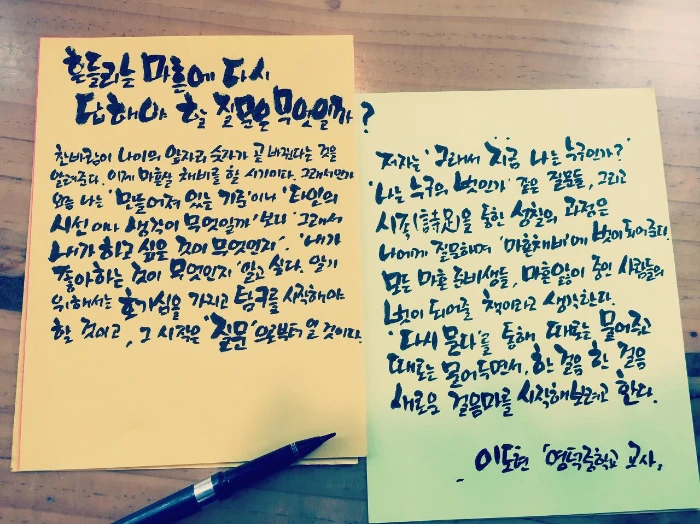 흔들리는 마흔에 다시
답해야 할 질문은 무엇일까?
찬바람이 나이의 앞자리 숫자가 곧 바뀐다는 것을
알려준다. 이제 마흔살 채비를 할 시기이다. 그래서인가
요즘 나는 '만들어져 있는 기준'이나 '타인의
시선이나 생각이 무엇일까' 보다 '그래서
내가 하고 싶은 것이 무엇인지', '내가
좋아하는 것이 무엇인지' 알고 싶다. 알기
위해서는 호기심을 가지고 탐구를 시작해야
할 것이고, 그 시작은 '질문'으로부터 일 것이다.
저자는 '그래서 지금 나는 누구인가?'
'나는 누구의 벗인가' 같은 질문들, 그리고
시족(詩足)을 통한 성찰의 과정은
나에게 질문하며 '마흔채비'에 벗이 되어준다.
모든 마흔 준비생들, 마흔앓이 중인 사람들의
벗이 되어줄 책이라고 생각한다.
'다시 묻다'를 통해 때로는 물어주고
때로는 묻어두면서, 한 걸음 한 걸음
새로운 걸음마를 시작해보려고 한다.
- 이도현 '영덕중학교 교사,